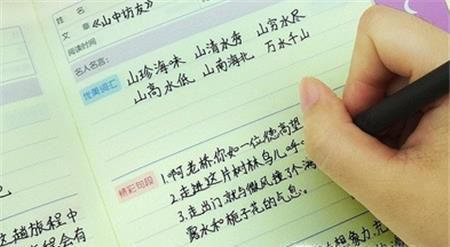 姓名
文章 《山中访友》
阅读时间
名人名言:
优美词汇 山珍海味 山清水秀 山穷水尽
山高水低 山南海北 万水千山
精彩句段 1.啊老桥你如一位德高望
2.走进这片树林鸟儿呼
3.走出门就与微风撞了个满
露水和栀子花的气息。
这趟旅程中
想象力,充